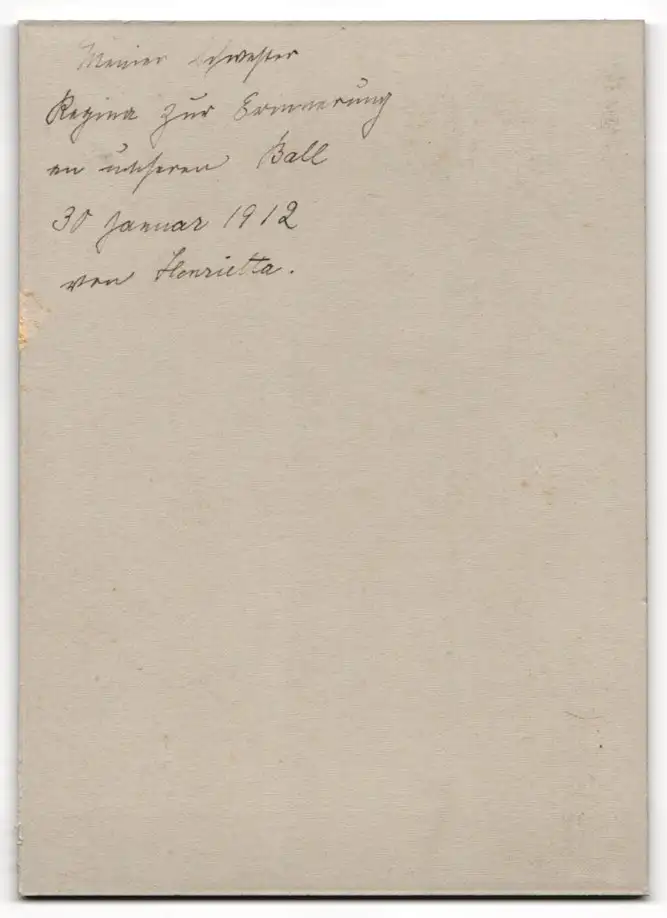 Meiner Schwester
Regina zur Erinnerung
an unseren Ball
30 Januar 1912
von Henrietta.